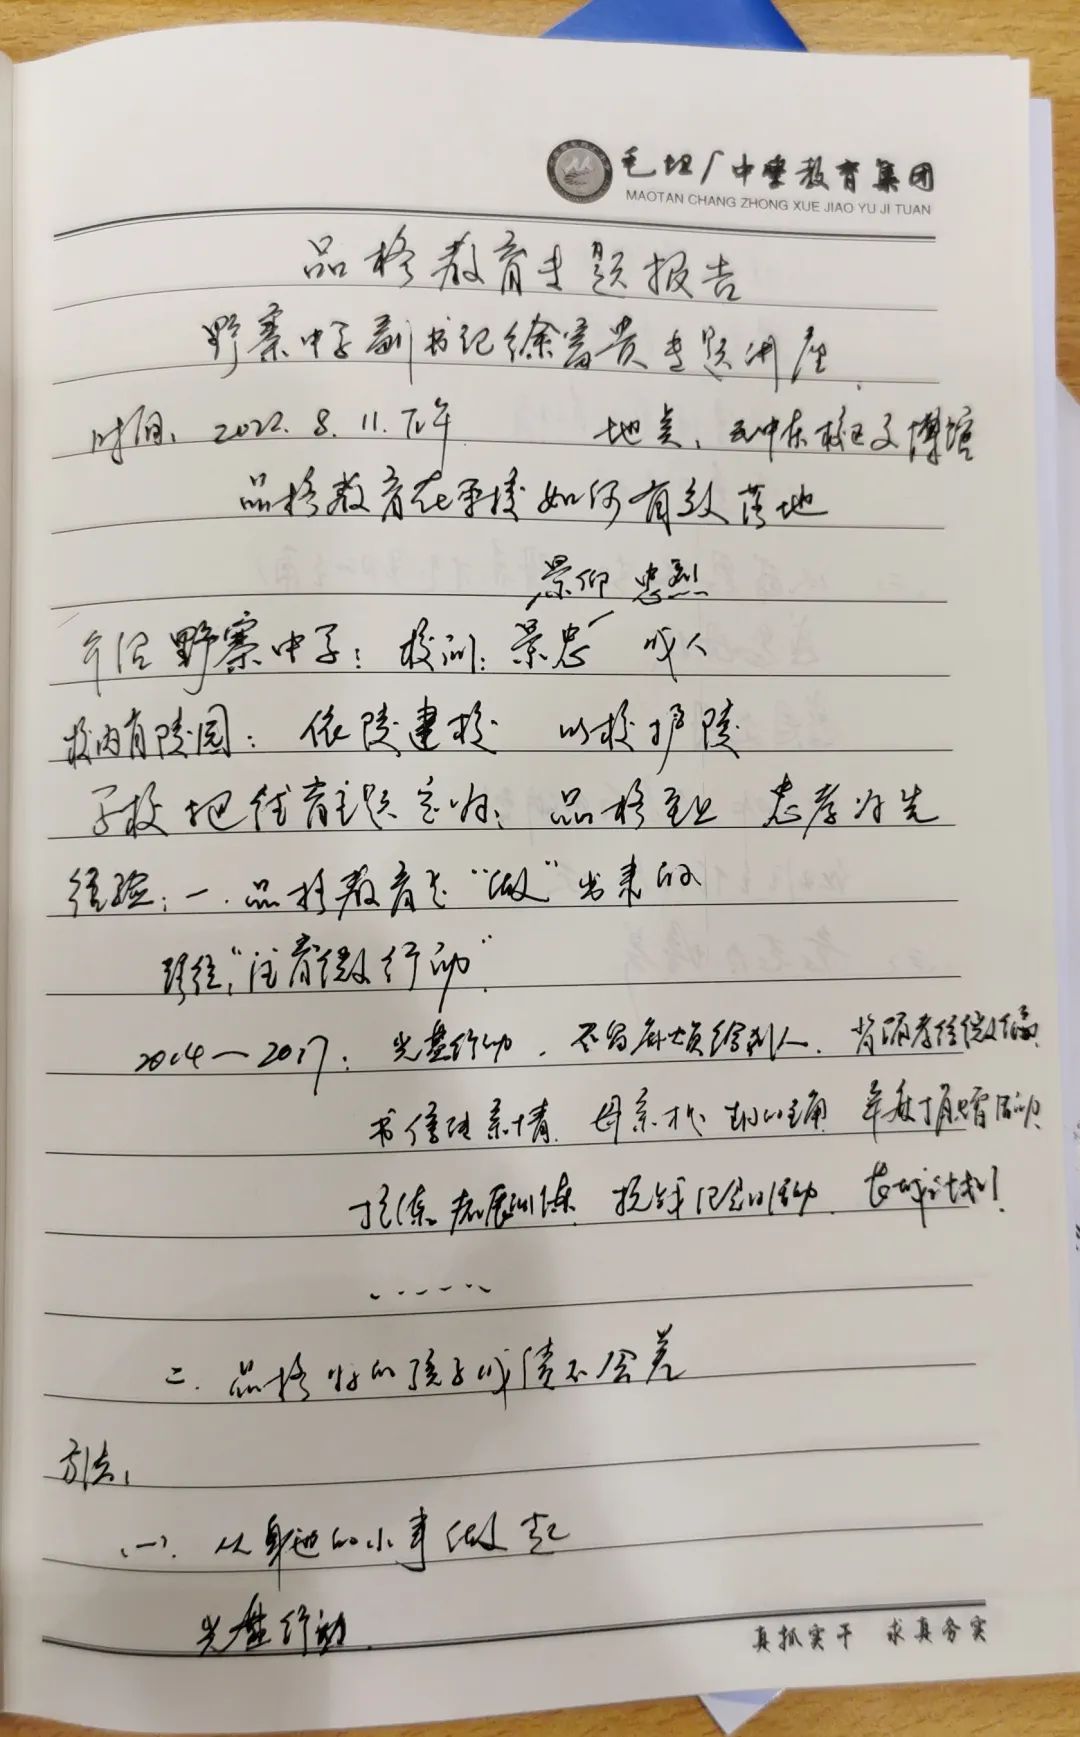 毛坦厂中学教育集团
MAOTAN CHANG ZHONG XUE JIAO YU JI TUAN
品格教育专题报告
野寨中学副书记徐富贵专题讲座
时间: 2022.8.11.下午 地点: 毛中东校区文博馆
品格教育在学校如何有效落地
景仰 忠烈
野寨中学: 校训: 景忠 成人
校内有陵园: 依陵建校 以校护陵
学校把德育主题定为: 品格至上 忠孝为先
经验: 一. 品格教育是“做”出来的
路径: “德育微行动”
2014—2017: 光盘行动. 不留麻烦给别人. 背诵孝经微
书信 亲情. 母亲 的 活动
拓展训练. 抗战纪念日活动. 长城计划!
……
二. 品格好的孩子成绩不会差
方法:
(一). 从身边的小事做起
光盘行动.
真抓实干 求真务实